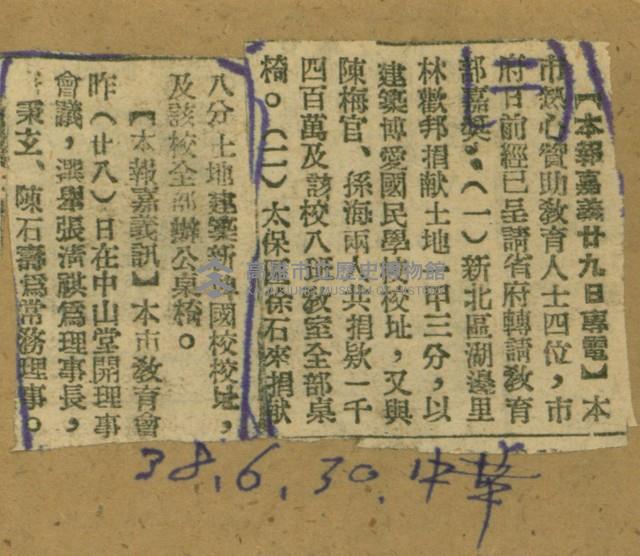 【本報嘉義廿九日專電】本
市熱心贊助教育人士四位，市
府日前經已呈請省府轉請教育
部嘉獎：（一）新北區湖邊里
林歡邦捐献土地一甲三分，以
建築博愛國民學校校址，又與
陳梅官、孫海兩 共捐欵一千
四百萬及該校八 教室全部桌
椅。（二）太保 徐石來捐献
八分土地建築新 國校校址，
及該校全部辦公桌椅。
【本報嘉義訊】本市教育會
昨（廿八）日在中山堂開理事
會議，選舉張淸祺爲理事長，
秉玄、陳石壽爲常務理事。
（二）
38.6.30.中華
高雄市立歷史博物館
KAOHSIUNG MUSEUM OF HISTORY